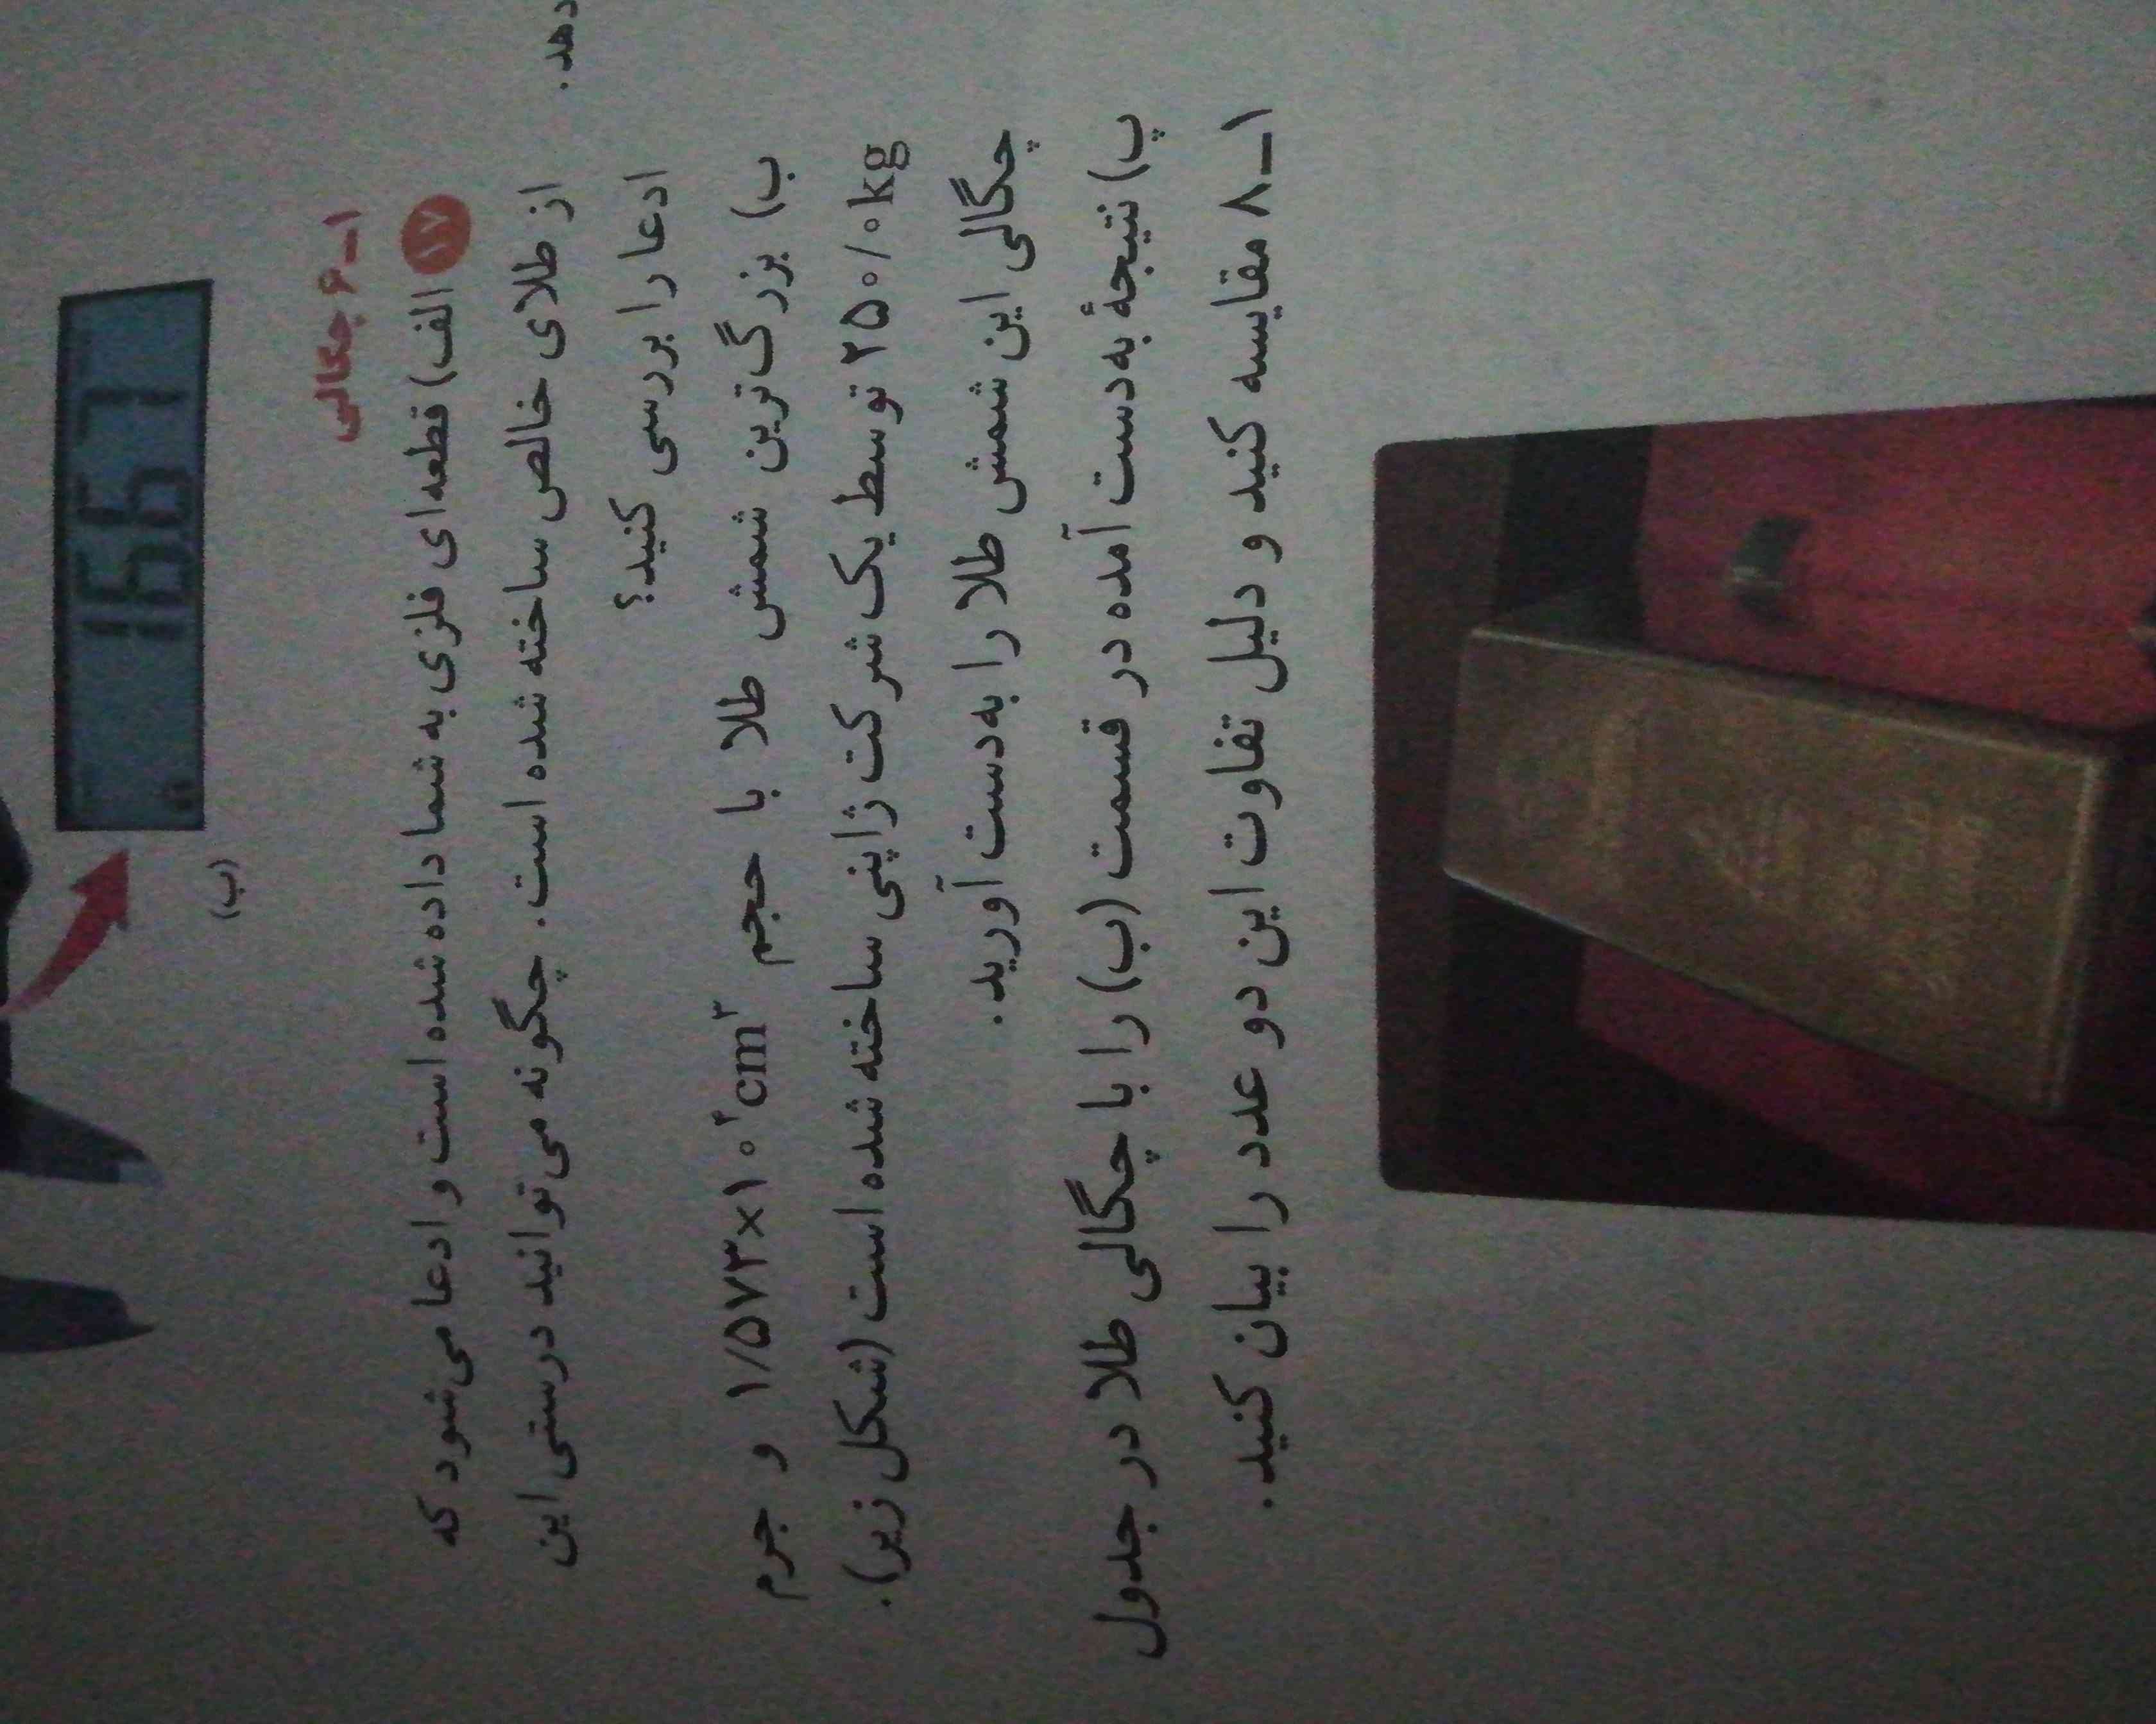 دهد.
1667
(ب)
۱ـ۶ چگالی
۱۷ الف) قطعه‌ای فلزی به شما داده شده است و ادعا می‌شود که
از طلای خالص ساخته شده است. چگونه می‌توانید درستی این
ادعا را بررسی کنید؟
ب) بزرگ‌ترین شمش طلا با حجم ۱/۵۷۳×۱۰۴cm۳ و جرم
۲۵۰/۰kg توسط یک شرکت ژاپنی ساخته شده است (شکل زیر).
چگالی این شمش طلا را به‌دست آورید.
پ) نتیجهٔ به‌دست آمده در قسمت (ب) را با چگالی طلا در جدول
۱ـ۸ مقایسه کنید و دلیل تفاوت این دو عدد را بیان کنید.